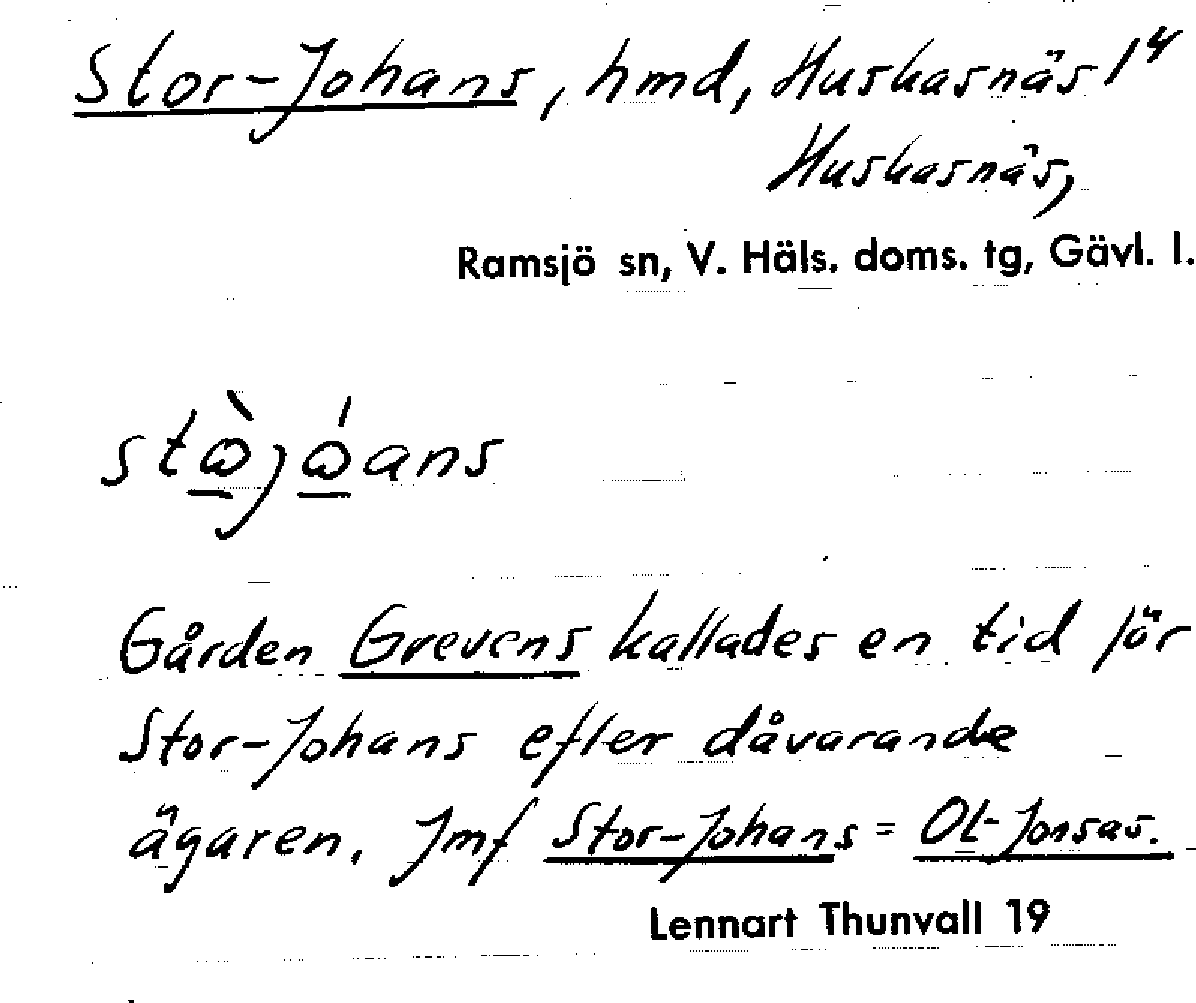 Stor-Johans, hmd, Huskasnäs 1⁴
Huskasnäs,
Ramsjö sn, V. Häls. doms. tg, Gävl. l.
Gården Grevens kallades en tid för
Stor-Johans efter dåvarande
ägaren. Jmf Stor-Johans = Ol-Jonsas.
Lennart Thunvall 19